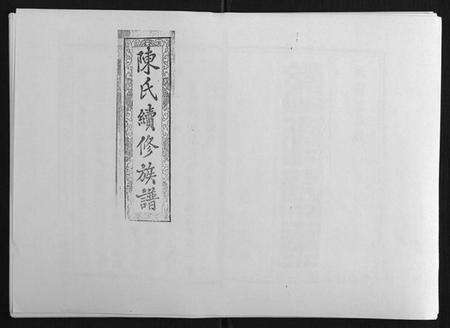 陳氏續修族譜